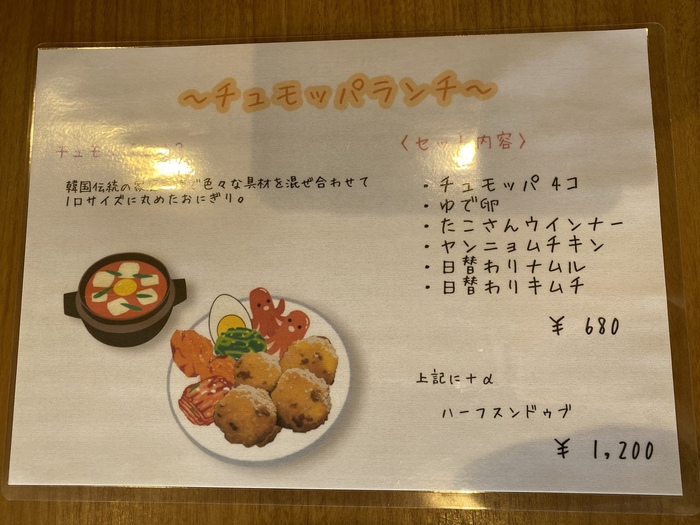 ～チュモッパランチ～
チュモ
韓国伝統の 色々な具材を混ぜ合わせて
1口サイズに丸めたおにぎり。
〈セット内容〉
・チュモッパ 4コ
・ゆで卵
・たこさんウインナー
・ヤンニョムチキン
・日替わりナムル
・日替わりキムチ
¥ 680
上記に+α
ハーフスンドゥブ
¥ 1,200